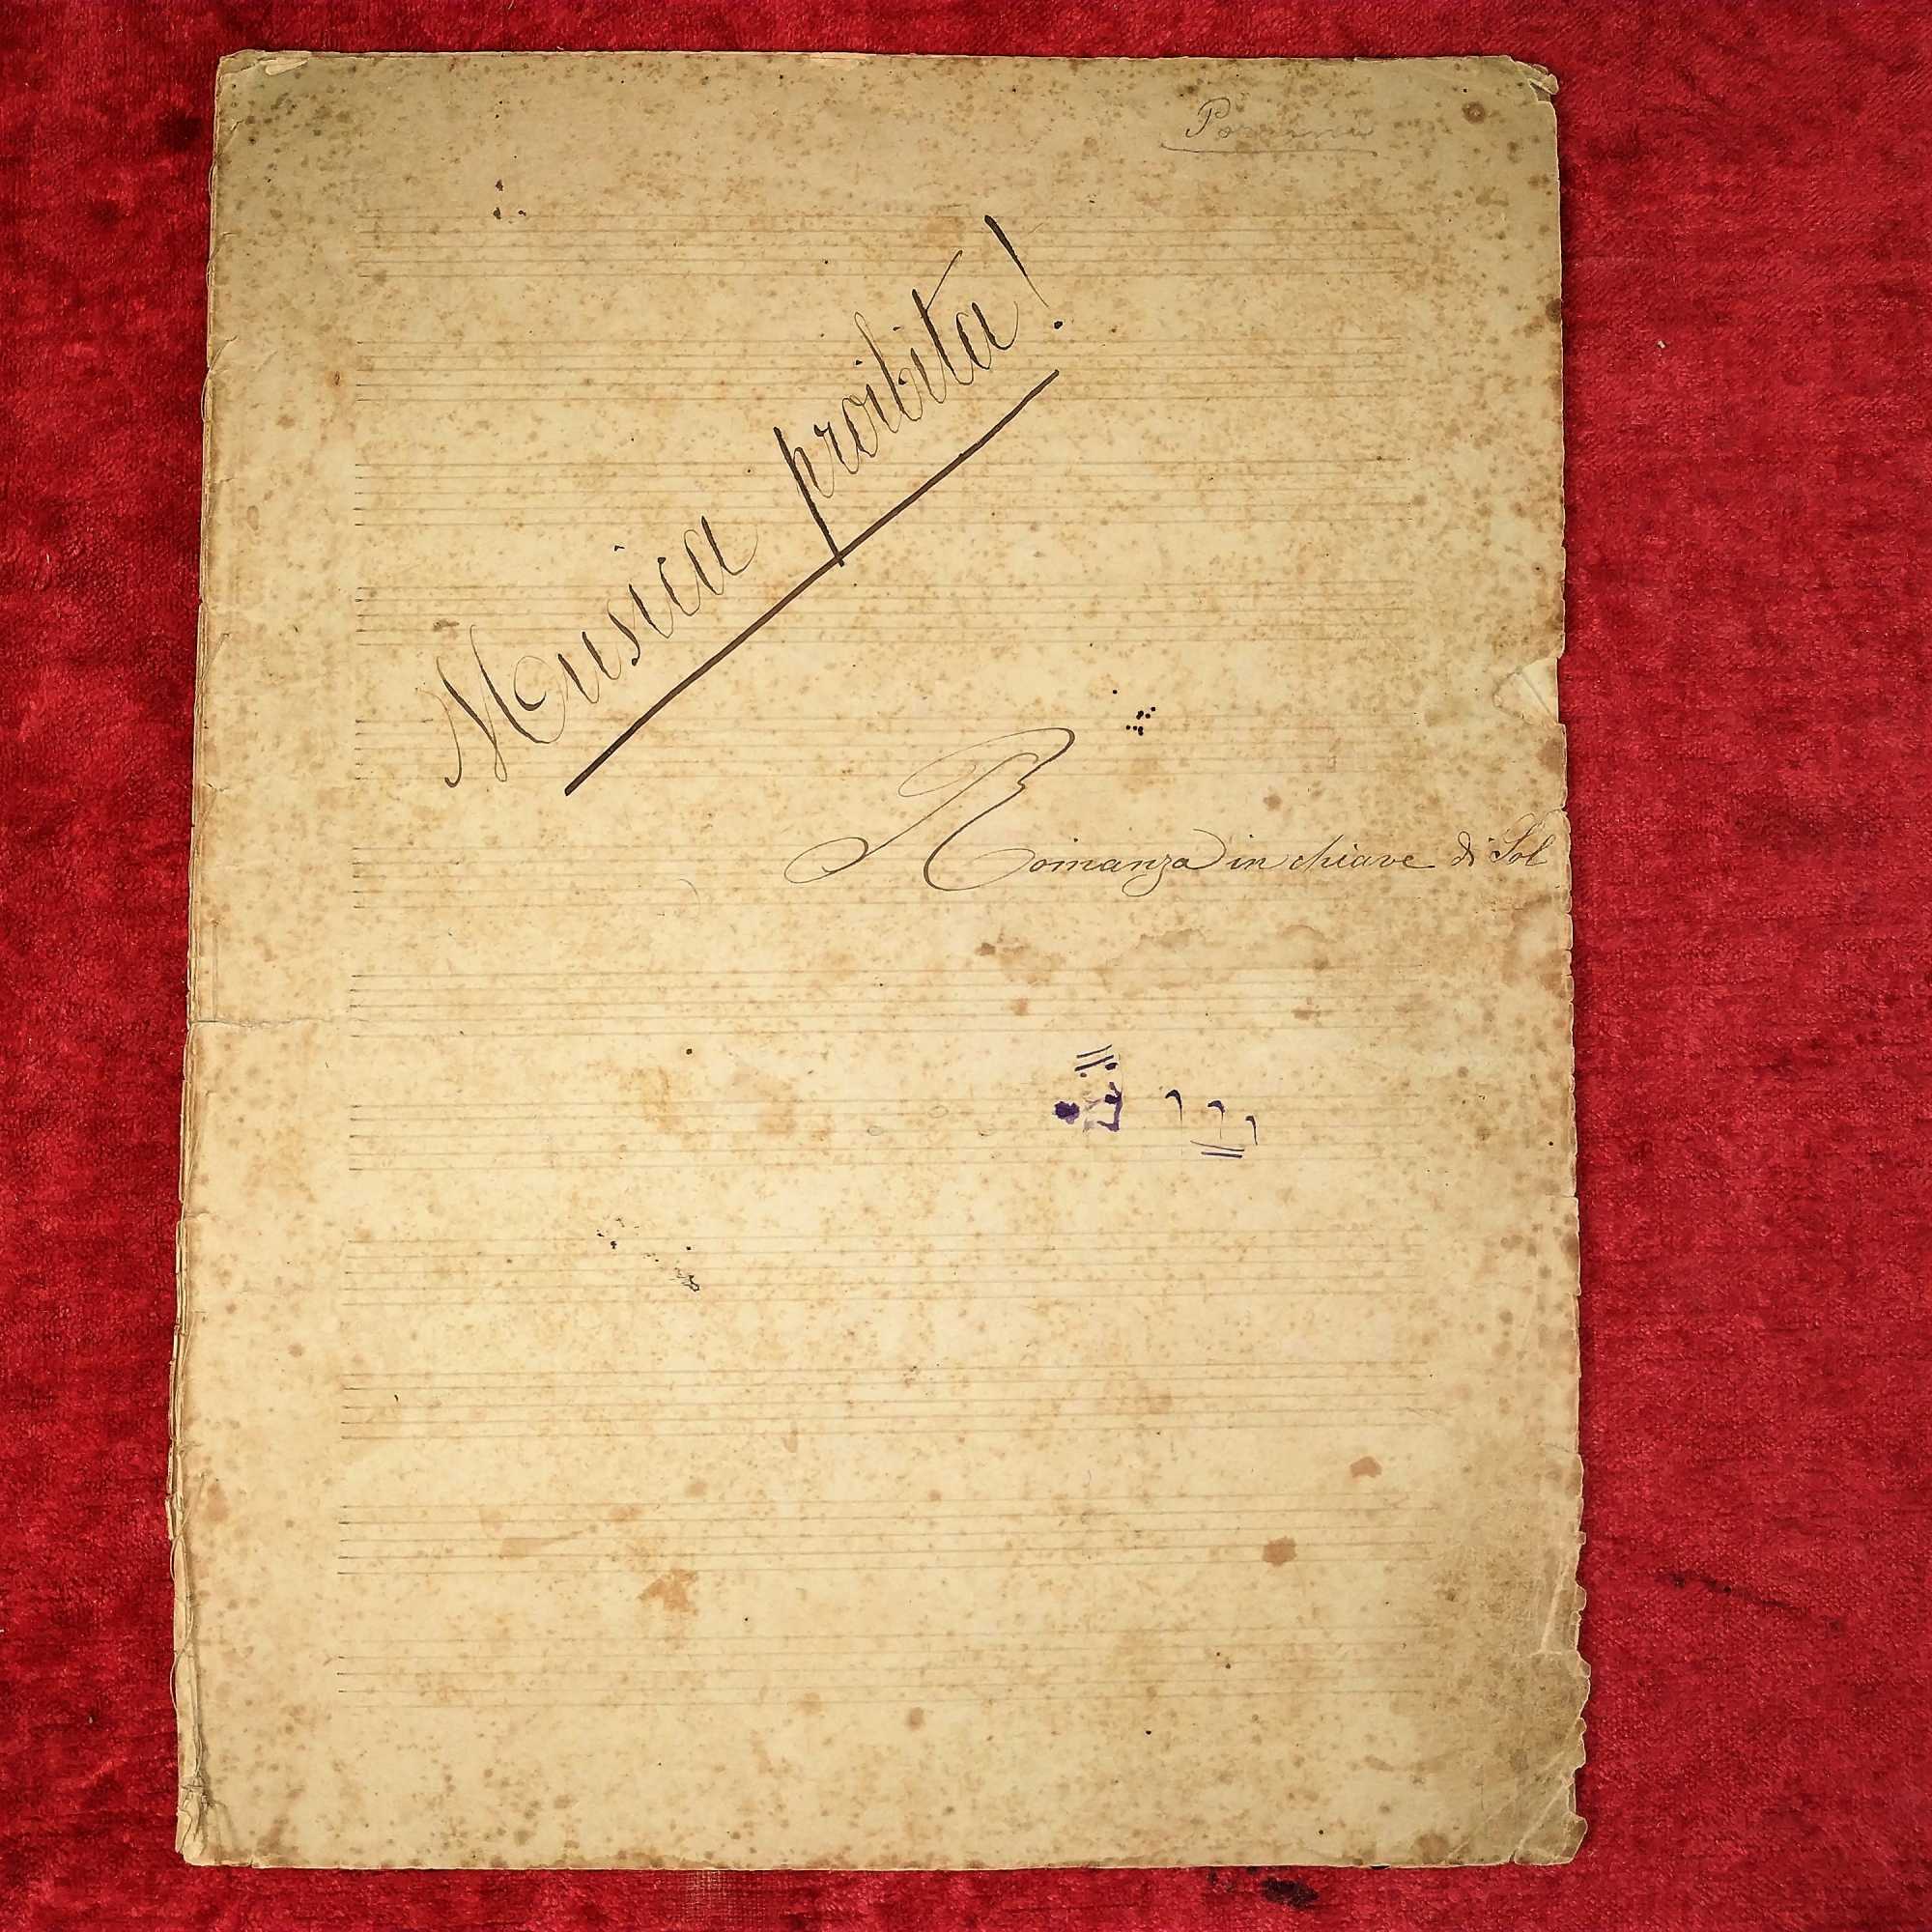 Musica proibita!
Romanza in chiave di Sol